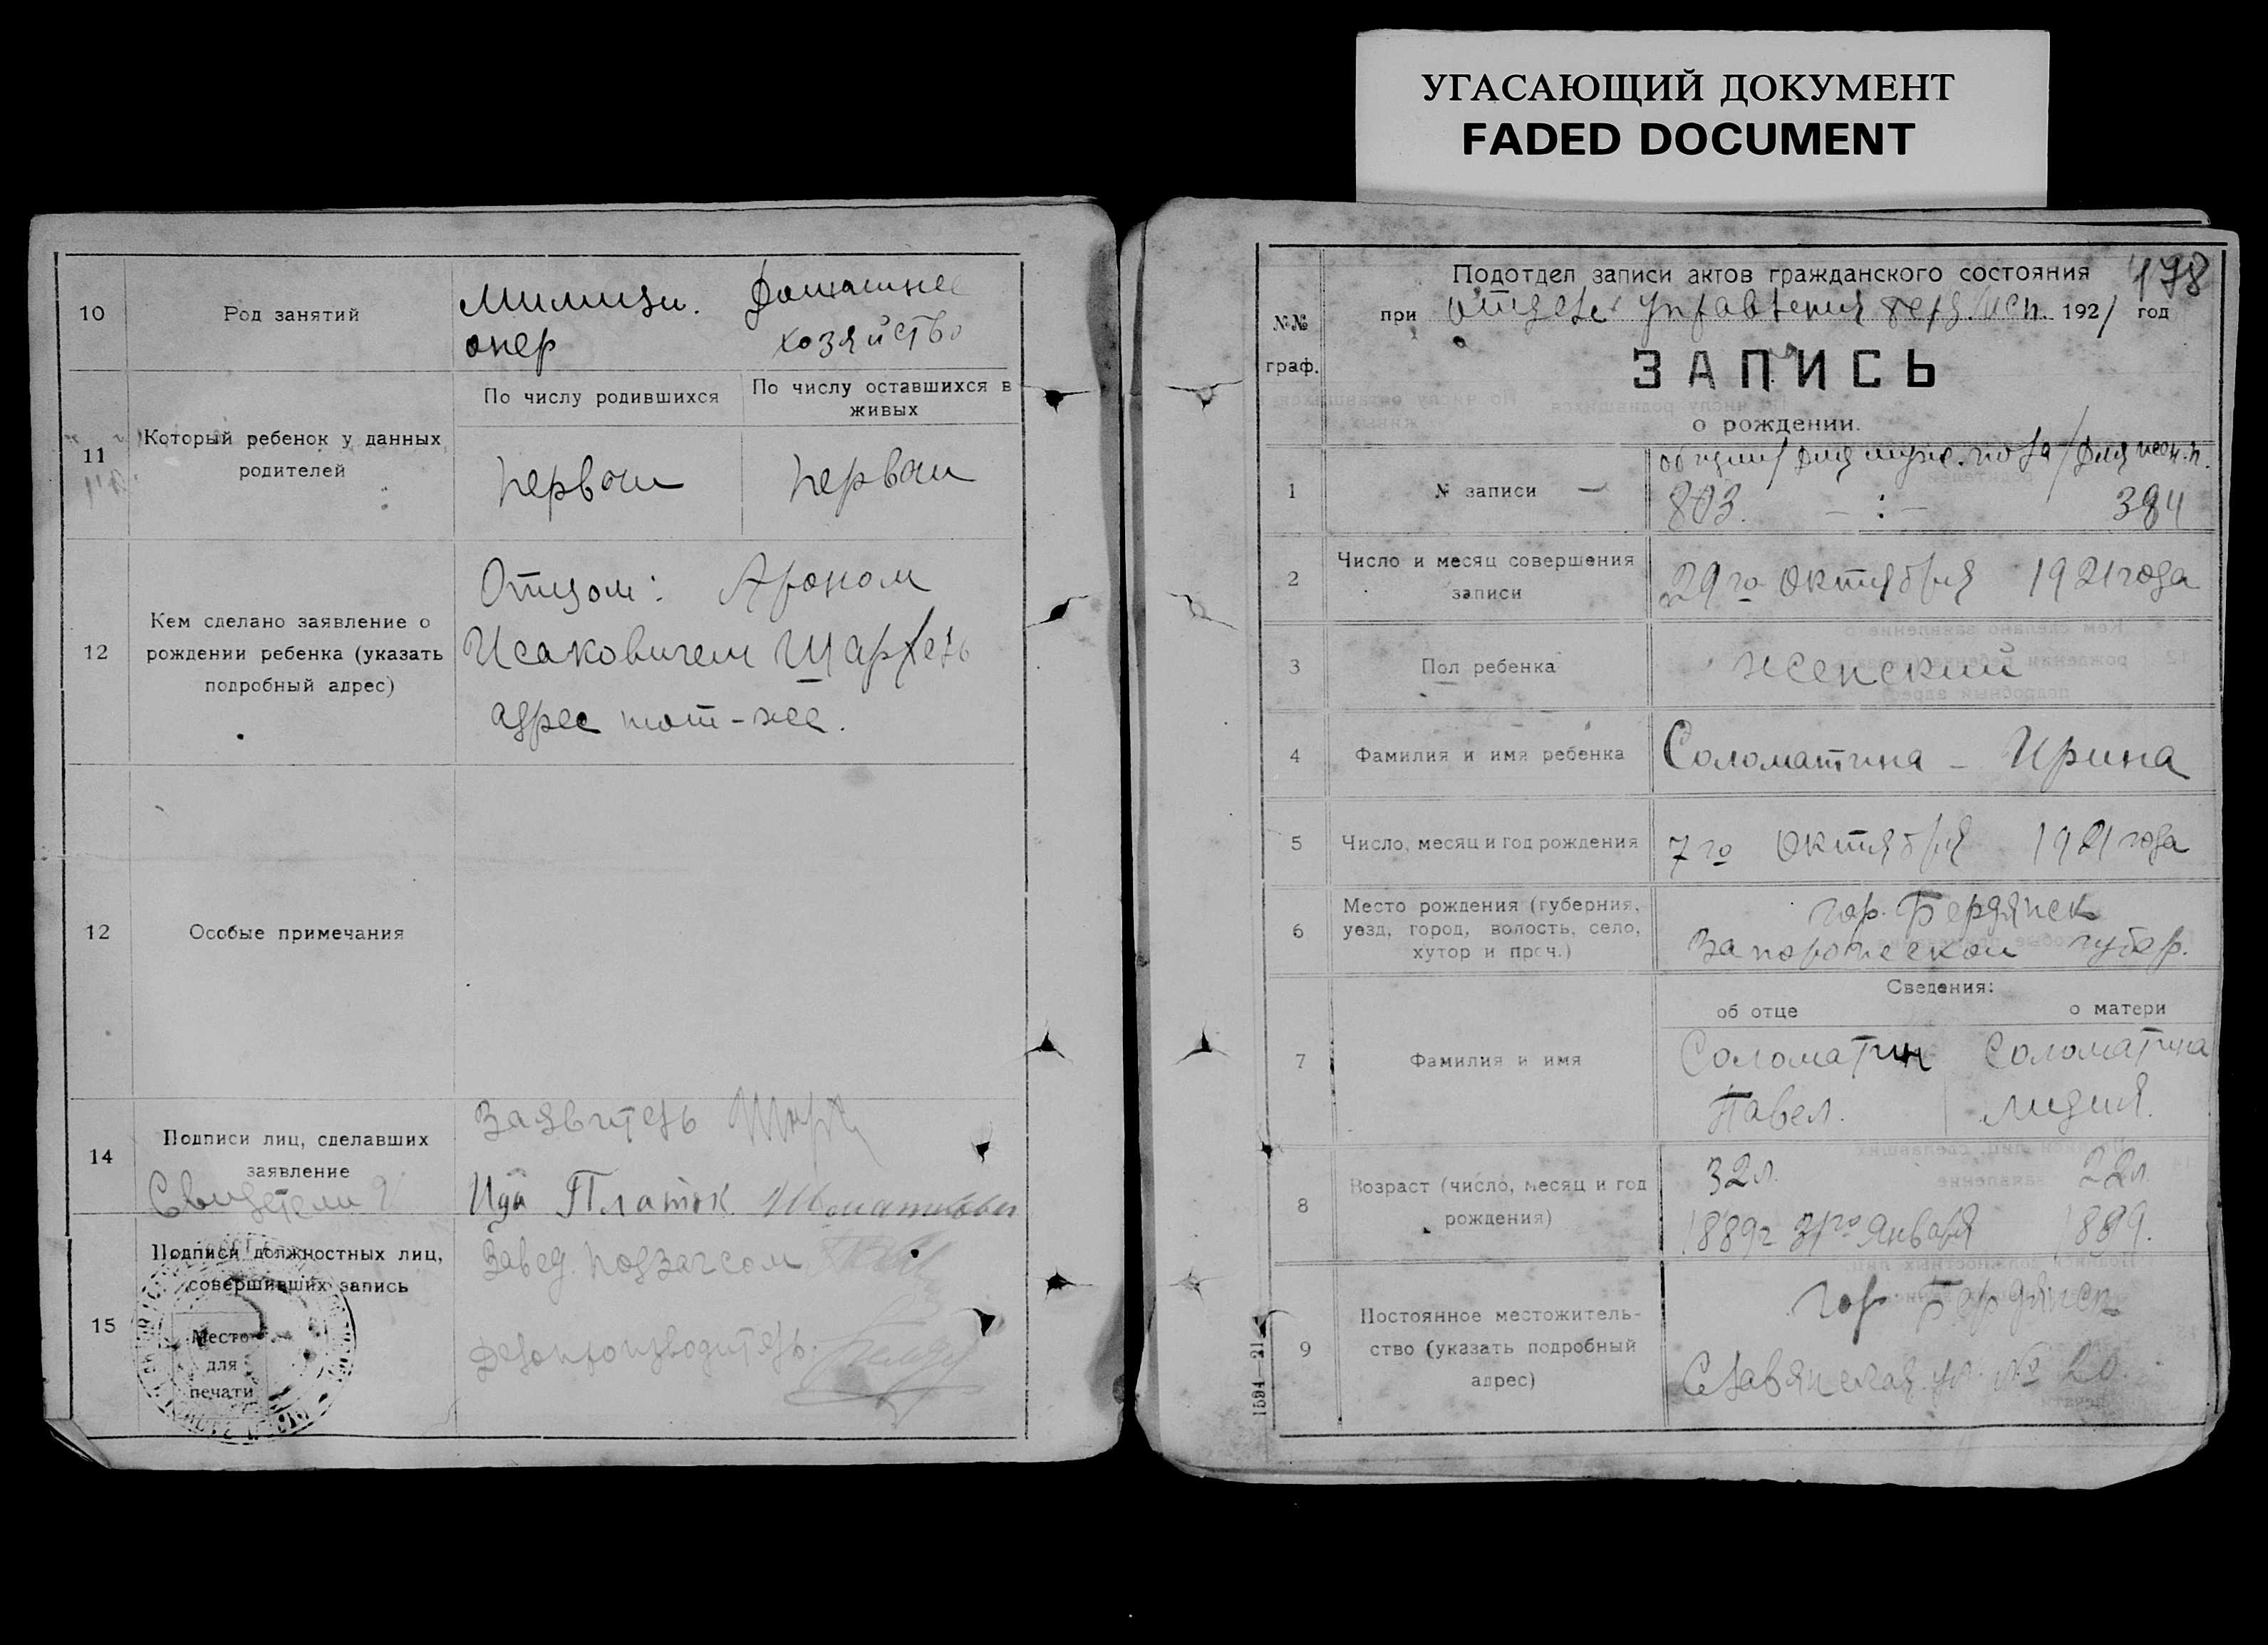 УГАСАЮЩИЙ ДОКУМЕНТ
FADED DOCUMENT
10
Род занятий
Милици.
онер
Домашнее
хозяйство
11
Который ребенок у данных
родителей
По числу родившихся
По числу оставшихся в
живых
первый
первый
12
Кем сделано заявление о
рождении ребенка (указать
подробный адрес)
Отцом: Ароном
Исаковичем
адрес тот-же.
12
Особые примечания
14
Подписи лиц, сделавших
заявление
Свидетели
Заявитель
Ида Платок
15
Подписи должностных лиц,
совершивших запись
Место
для
печати
Завед. подзагсом
Делопроизводитель
178
№№
граф.
Подотдел записи актов гражданского состояния
при отделе Управления 1921 год
ЗАПИСЬ
о рождении.
1
№ записи —
общий/для муже. пола/для жен. п.
803. — : — 384
2
Число и месяц совершения
записи
29го Октября 1921 года
3
Пол ребенка
женский
4
Фамилия и имя ребенка
Соломатина - Ирина
5
Число, месяц и год рождения
7го Октября 1921 года
6
Место рождения (губерния,
уезд, город, волость, село,
хутор и проч.)
гор. Бердянск
Запорожской губер.
Сведения:
об отце
о матери
7
Фамилия и имя
Соломатин
Павел.
Соломатина
Лидия.
8
Возраст (число, месяц и год
рождения)
32л.
1889г 31го Января
22л.
1899.
9
Постоянное местожитель-
ство (указать подробный
адрес)
гор. Бердянск
Славянская ул. № 20.
1594—21